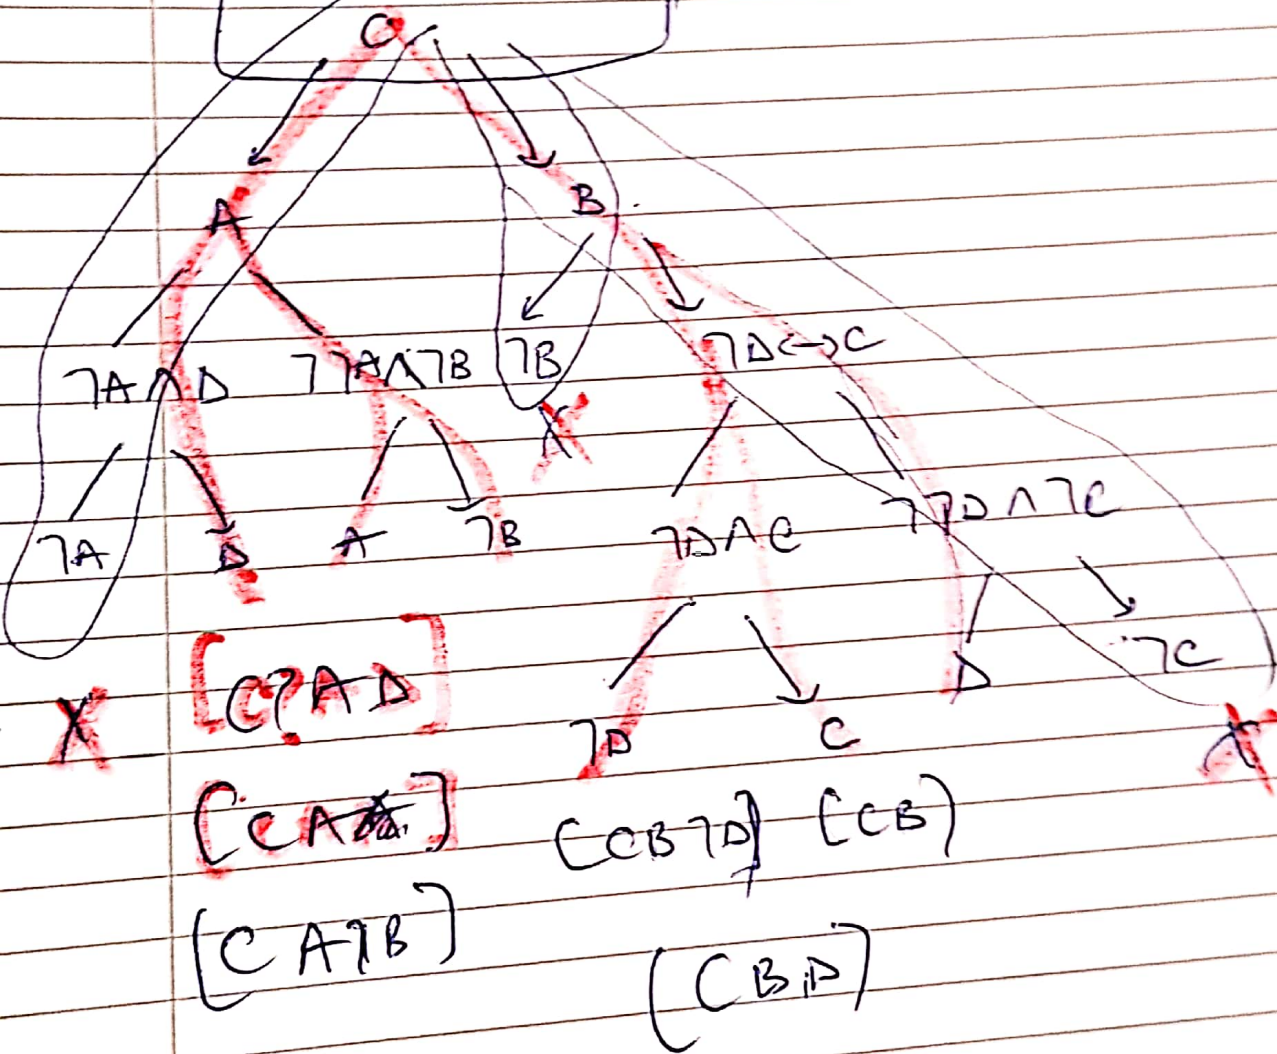 C
A B
¬A∧D ¬¬A∧¬B ¬B ¬D<->C
X
¬A D A ¬B ¬D∧C ¬¬D∧¬C
D ¬C
X [C?AD] ¬D C X
[CA] [CB¬D] [CB]
[CA¬B] [CBD]